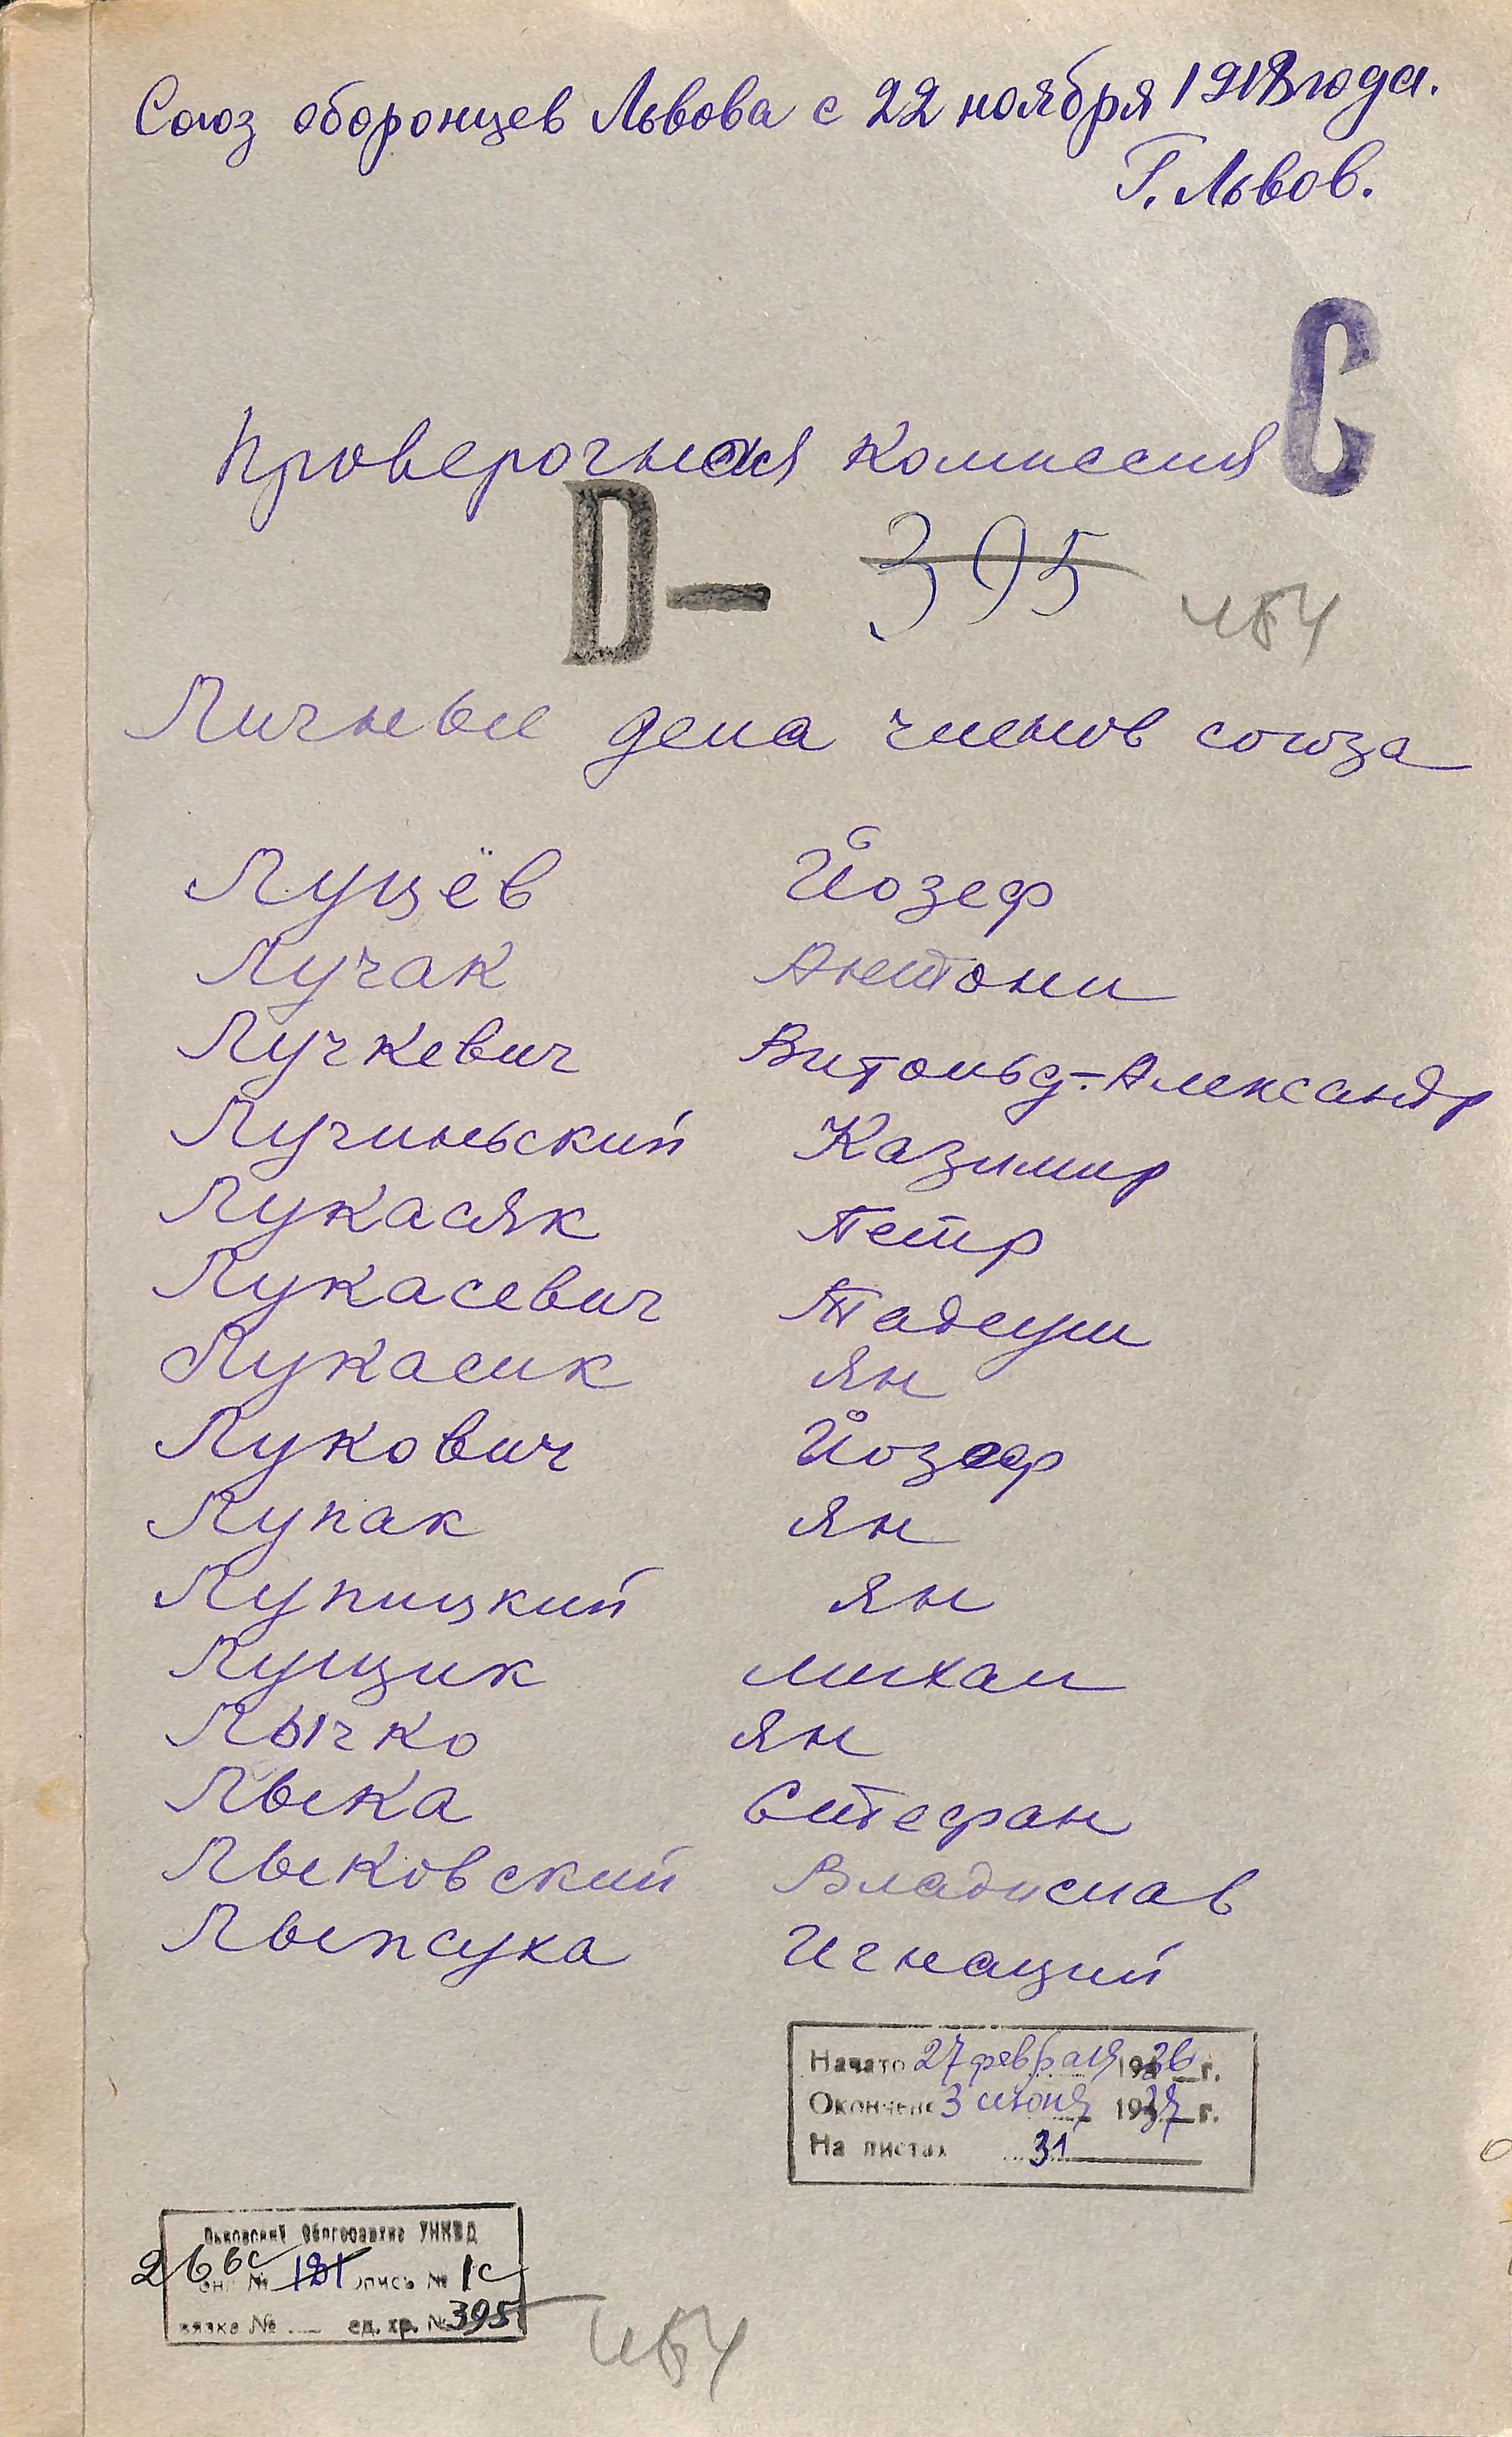 Союз оборонцев Львова с 22 ноября 1918 года.
Г. Львов.
С
Проверочная комиссия
D—
395
Личные дела членов союза
Луцёв Йозеф
Лучак Антони
Лучкевич Витольд-Александр
Лучиньский Казимир
Лукасяк Петр
Лукасевич Тадеуш
Лукасик Ян
Лукович Йозеф
Лупак Ян
Лупицкий Ян
Лущик Михал
Лычко Ян
Лыка Стефан
Лыковский Владислав
Лыпсуха Игнаций
Начато 27 февраля 1936 г.
Окончено 3 июня 1937 г.
На листах 31
Львовский Облгосархив УНКВД
266с
Фонд № 121 опись № 1с
вязка № ед. хр. № 395